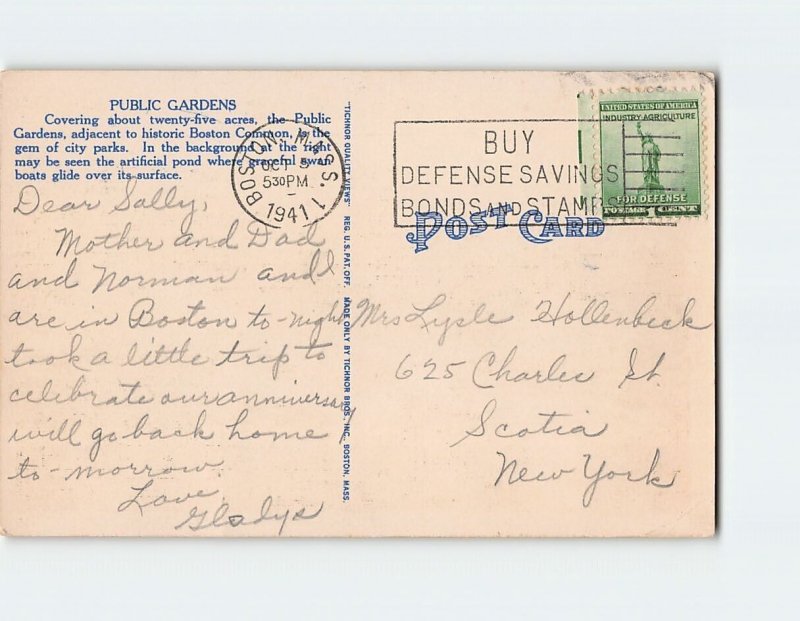 PUBLIC GARDENS
Covering about twenty-five acres, the Public
Gardens, adjacent to historic Boston Common, is the
gem of city parks. In the background at the right
may be seen the artificial pond where graceful swan
boats glide over its surface.
Dear Sally,
Mother and Dad
and Norman and I
are in Boston to-night
took a little trip to
celebrate our anniversary
will go back home
to-morrow.
Love
Gladys
"TICHNOR QUALITY VIEWS" REG. U. S. PAT. OFF. MADE ONLY BY TICHNOR BROS., INC., BOSTON, MASS.
BOSTON, MASS.
OCT 5
530PM
1941
1
BUY
DEFENSE SAVINGS
BONDS AND STAMPS
UNITED STATES OF AMERICA
INDUSTRY AGRICULTURE
FOR DEFENSE
POSTAGE 1 CENT
POST CARD
Mrs Lysle Hollenbeck
625 Charles St.
Scotia
New York